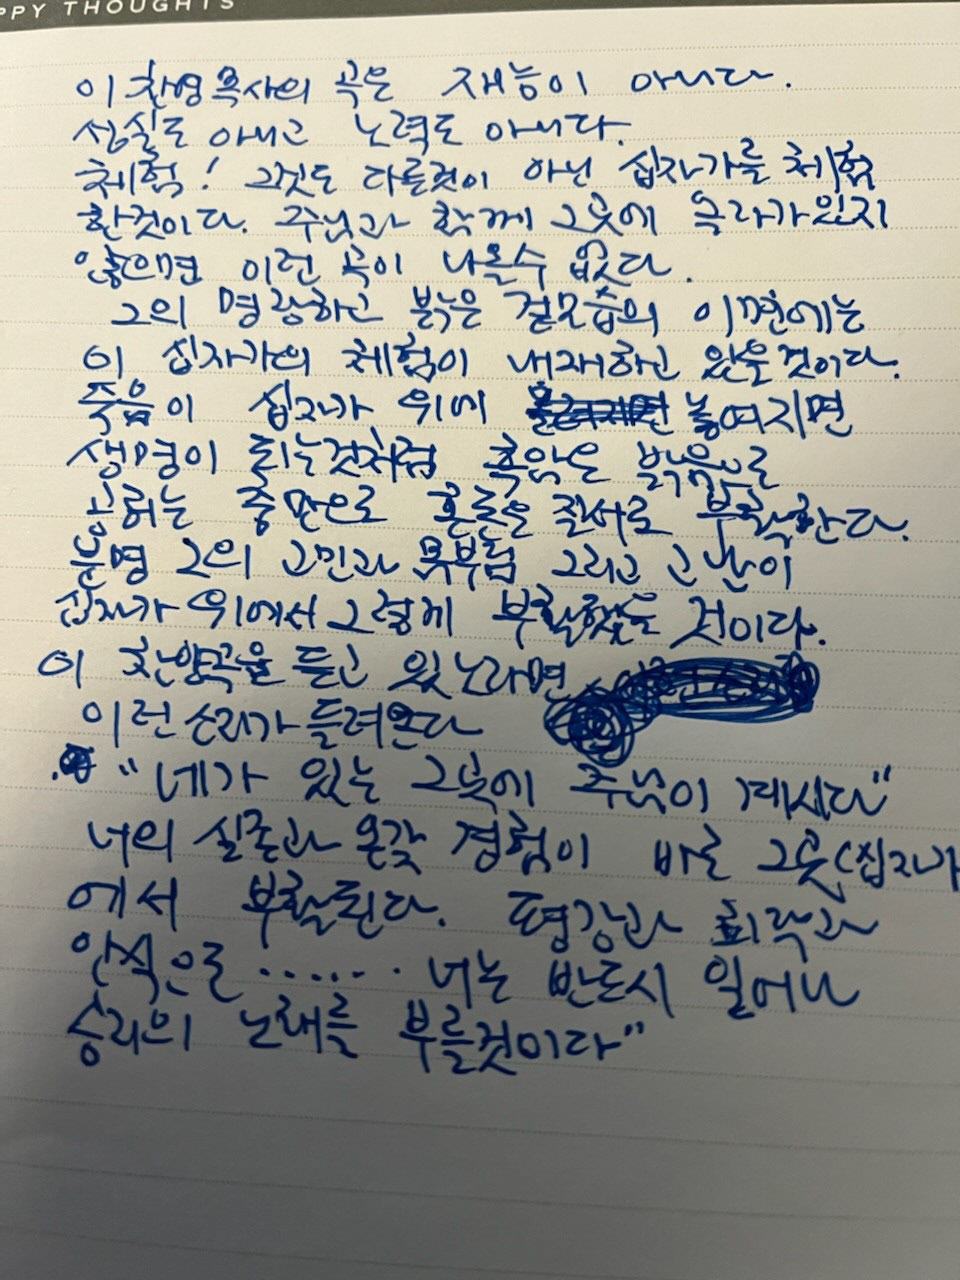 PPY THOUGHTS
이찬영 목사의 곡은 재능이 아니다.
성실도 아니고 노력도 아니다.
체험! 그것도 다른것이 아닌 십자가를 체험
한것이다. 주님과 함께 그곳에 올라가있지
않으면 이런 곡이 나올수 없다.
그의 명랑하고 붉은 겉모습의 이면에는
이 십자가의 체험이 내재하고 있을것이다.
죽음이 십자가 위에 놓여지면
생명이 되는것처럼 흑암은 밝음으로
공허는 충만으로 혼돈은 질서로 부활한다.
분명 그의 고민과 몸부림 그리고 고난이
십자가 위에서 그렇게 부활했을 것이다.
이 찬양곡을 듣고 있노라면
이런 소리가 들려온다
"네가 있는 그곳에 주님이 계시다"
너의 실존과 온갖 경험이 바로 그곳(십자가
에서 부활된다. 평강과 희락과
안식으로 ...... 너는 반드시 일어나
승리의 노래를 부를것이다"